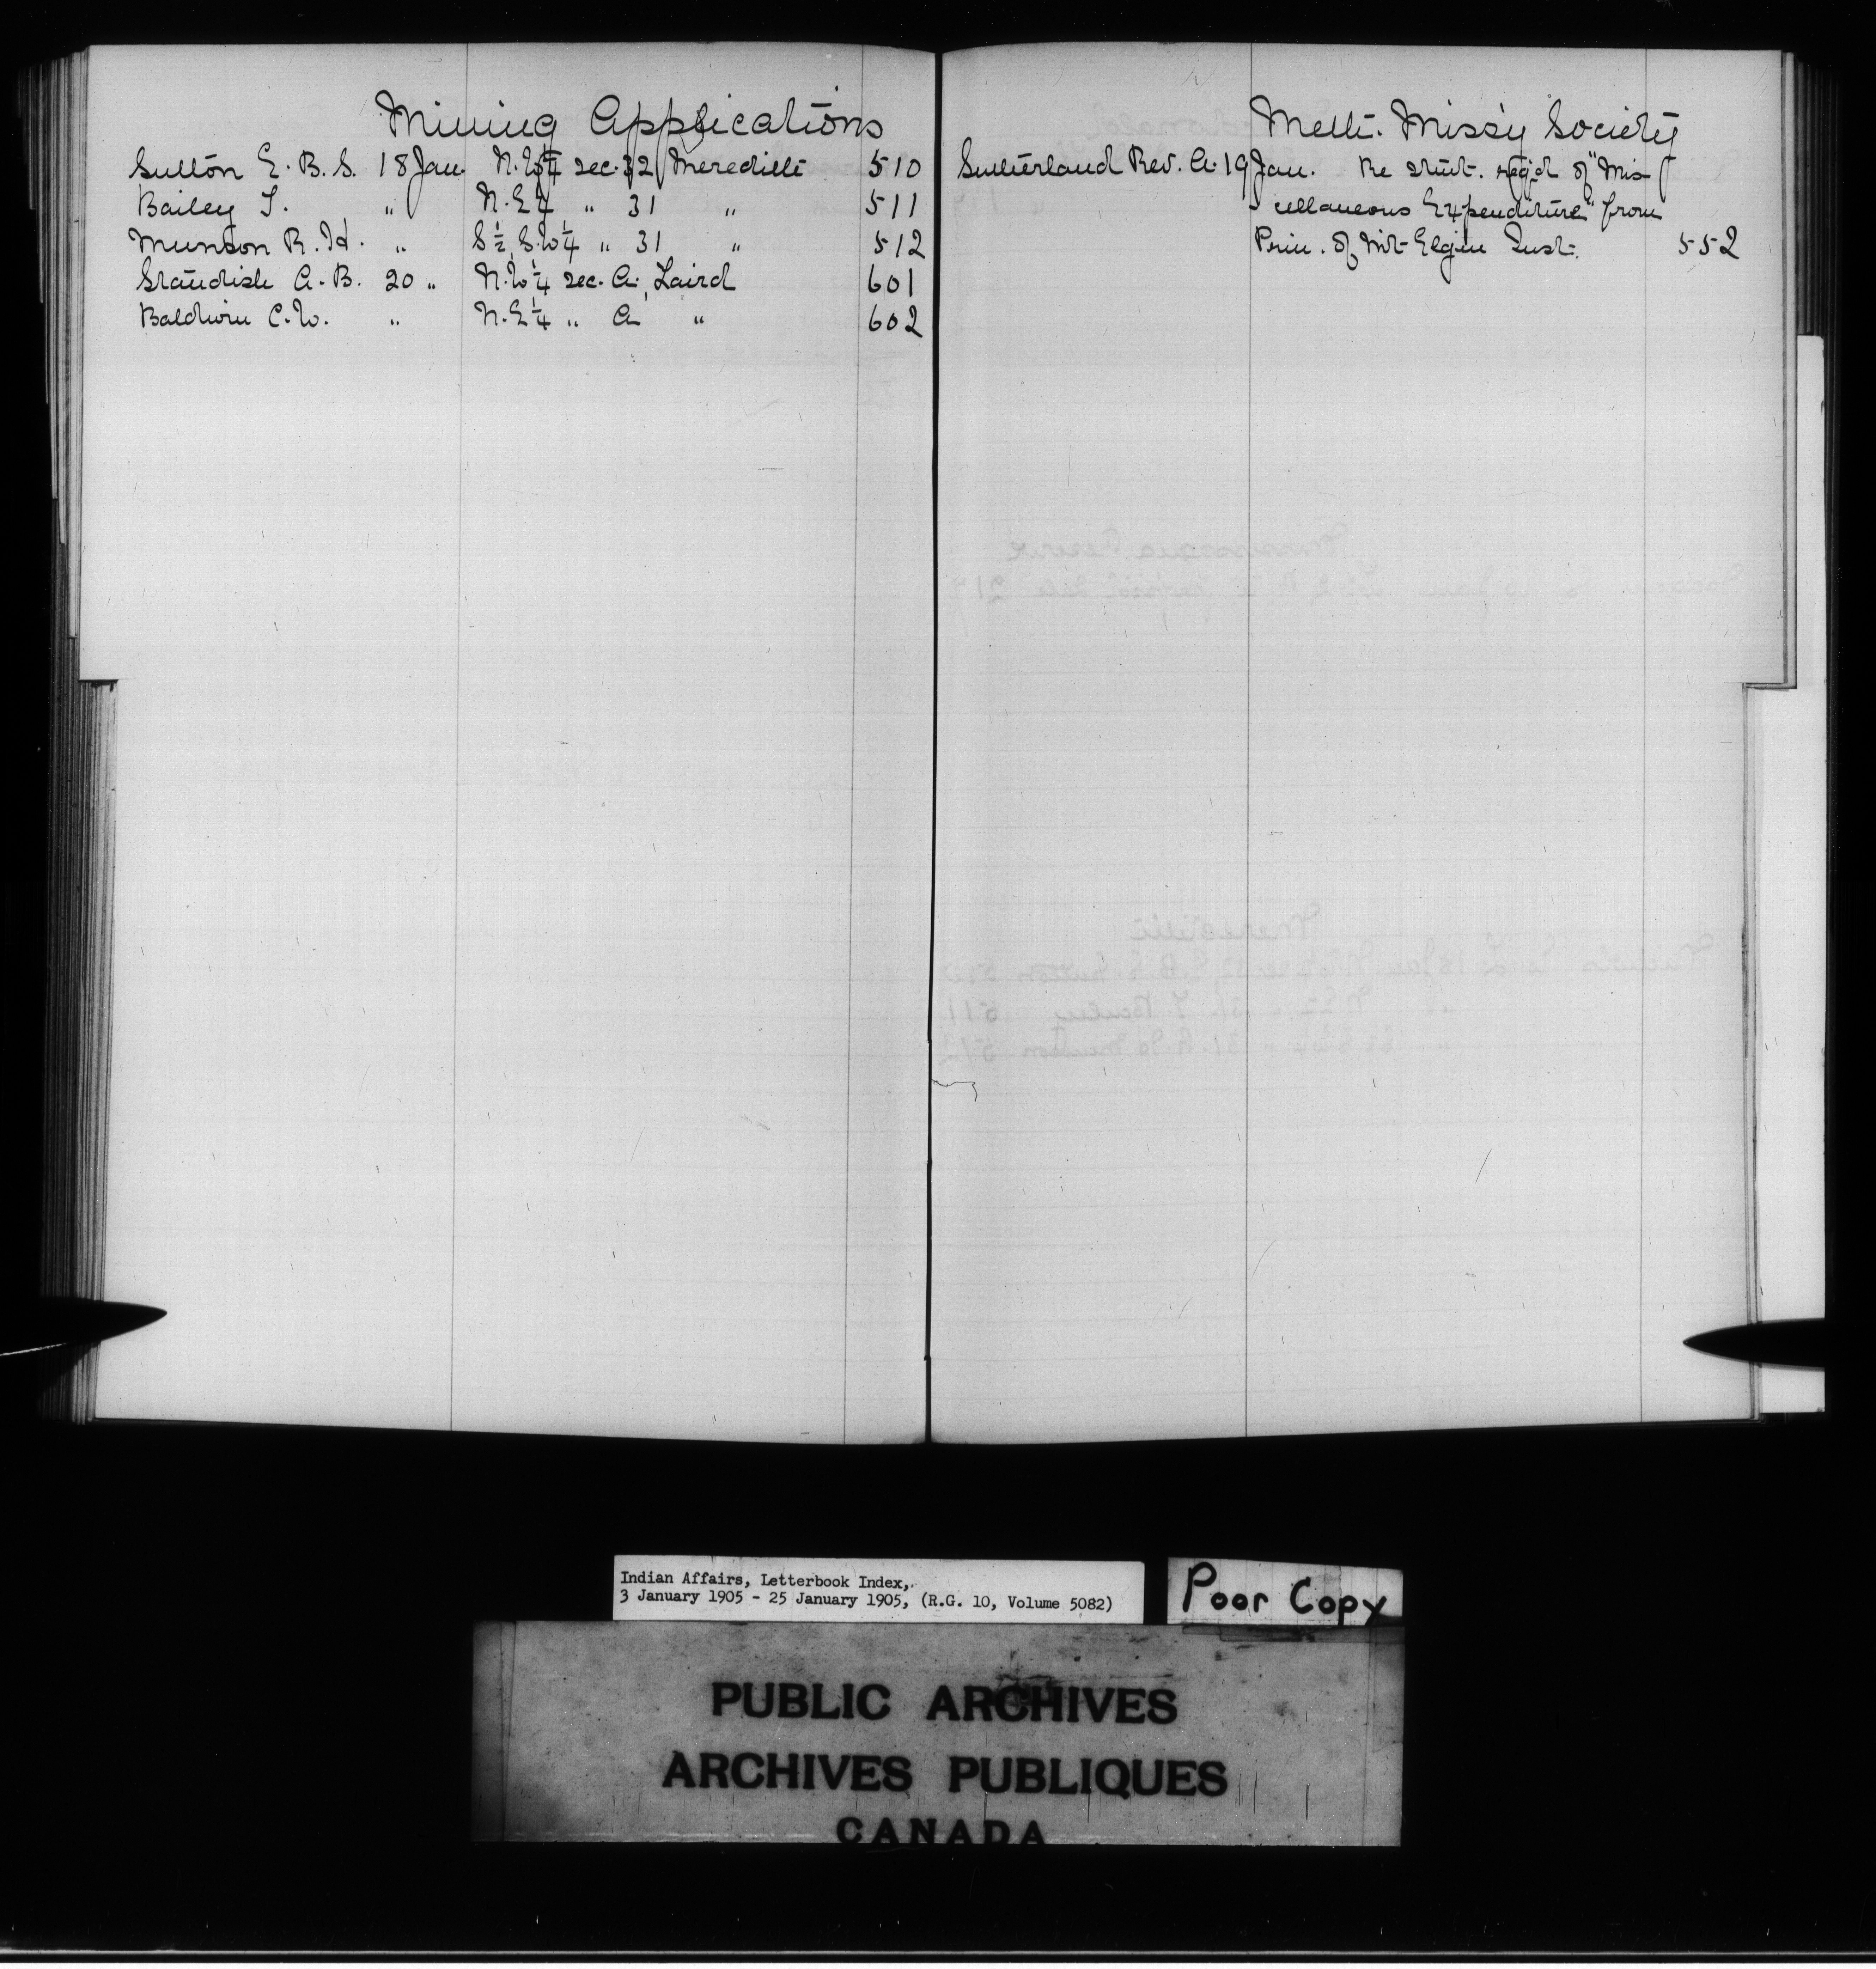 Mining Applications
Sutton E. B. S. 18 Jan. N.W¼ sec. 32 Meredith 510
Bailey T. " N.E¼ " 31 " 511
Munson R. H. " S½ S.W¼ " 31 " 512
Standish A. B. 20 " N.W¼ sec. A, Laird 601
Baldwin C. W. " N.E¼ " A " 602
Meth. Miss'y Society
Sutherland Rev. A. 19 Jan. Re stmt. req'd of "Mis-
cellaneous Expenditure" from
Prin. of Mt Elgin Inst. 552
Indian Affairs, Letterbook Index,
3 January 1905 - 25 January 1905, (R.G. 10, Volume 5082)
Poor Copy
PUBLIC ARCHIVES
ARCHIVES PUBLIQUES
CANADA